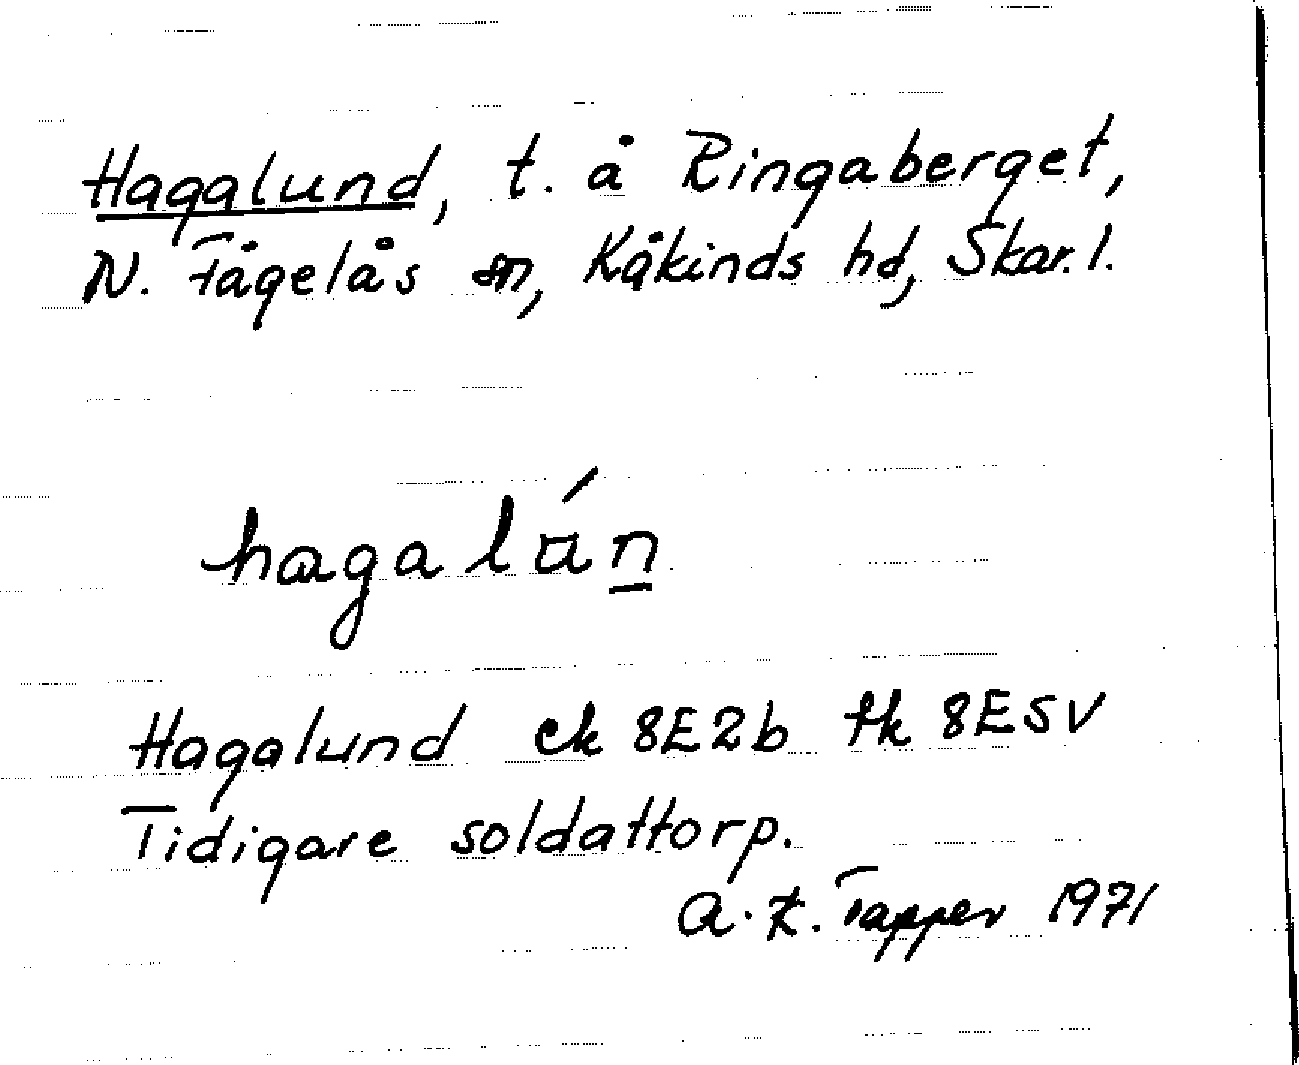 Hagalund, t. å Ringaberget,
N. Fågelås sn, Kåkinds hd, Skar. l.
hagalún
Hagalund ek 8E2b tk 8E5V
Tidigare soldattorp.
A.K. Tapper 1971